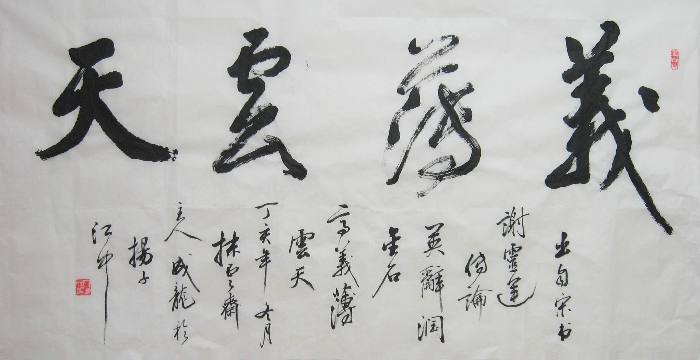 義薄雲天
出自宋书
謝靈運
傳論
英辭润
金石
高義薄
雲天
丁亥年冬月
齋
主人成龍於
揚子
江畔